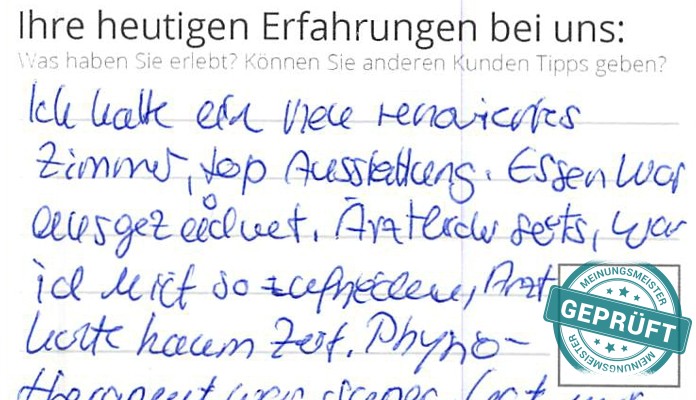 Ihre heutigen Erfahrungen bei uns:
Was haben Sie erlebt? Können Sie anderen Kunden Tipps geben?
Ich hatte ein neu renoviertes
Zimmer, top Ausstattung. Essen war
ausgezeichnet. Ärztlicher seits, war
ich nicht so zufrieden, Arzt
hatte kaum Zeit. Physio-
therapeut war super
MEINUNGSMEISTER
GEPRÜFT
MEINUNGSMEISTER